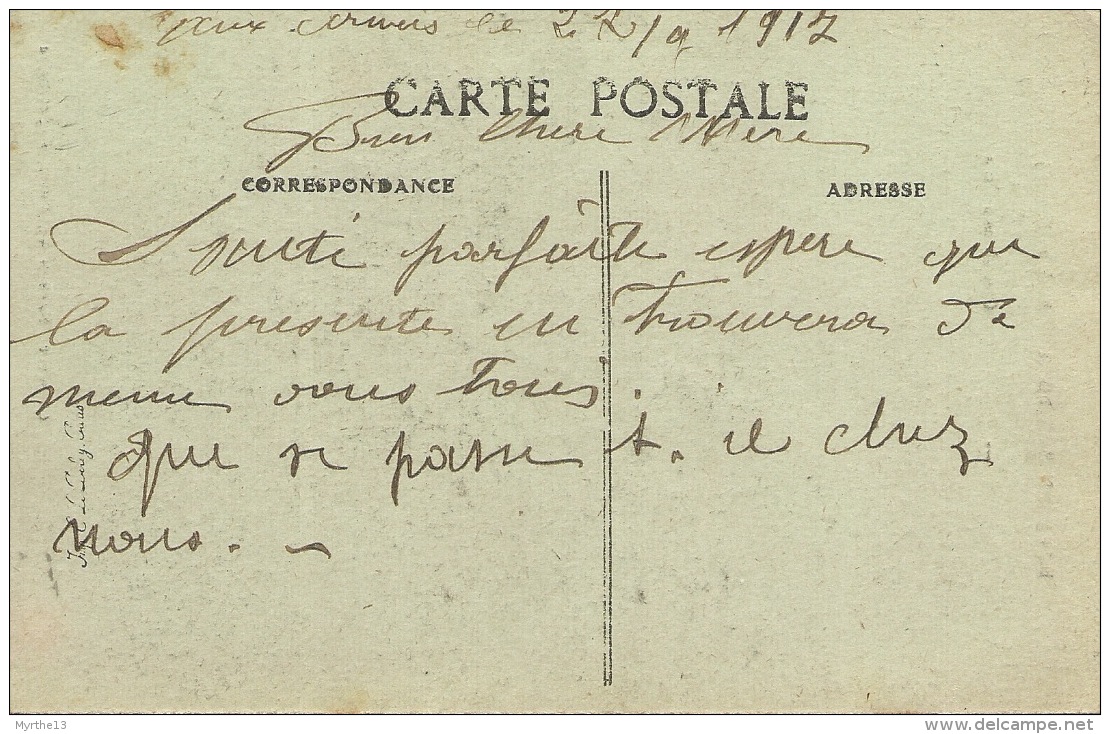 aux Armées le 22/9 1917
CARTE POSTALE
Bien chere Mere
CORRESPONDANCE
ADRESSE
Sante parfaite espere que
la presente en trouvera de
meme vous tous.
Que se passe t. il chez
nous.
Myrthe13
delcampe.net